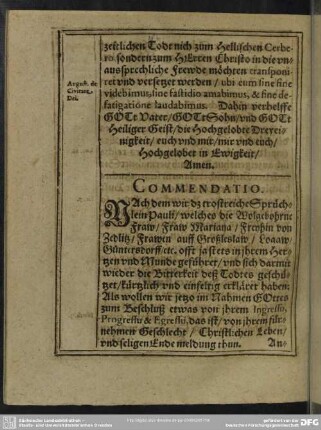 zeitlichen Todt nich zům Hellischen Cerbe-
ro sondern zům HErren Christo in die vn-
aussprechliche Frewde möchten transponi-
ret vnd versetzet werden / ubi eum sine fine
videbimus, sine fastidio amabimus, & sine de-
fatigatione laudabimus. Dahin verhelffe
GOTt Vater / GOTt Sohn / vnd GOTt
Heiliger Geist / die Hochgelobte Dreyei-
nigkeit / euch vnd mir / mir vnd euch /
Hochgelobet in Ewigkeit /
Amen.
August. de
Civitate
Dei.
COMMENDATIO.
NAch dem wir dz trostreiche Sprüch-
lein Pauli / welches die Wolgebohrne
Fraw / Fraw Mariana / Freyhin von
Zedlitz / Frawen auff Großlesslaw / Logaw /
Güntersdorff / etc. offt ja stets in jhrem Her-
tzen vnd Munde geführet / vnd sich darmit
wieder die Bitterkeit deß Todtes geschü-
tzet / kürtzlich vnd einfeltig erkläret haben:
Als wollen wir jetzo im Nahmen GOttes
zum Beschluß etwas von jhrem Ingressu,
Progressu & Egressu, das ist / von jhrem für-
nehmen Geschlecht / Christlichen Leben /
vnd seligen Ende meldung thun.
An-